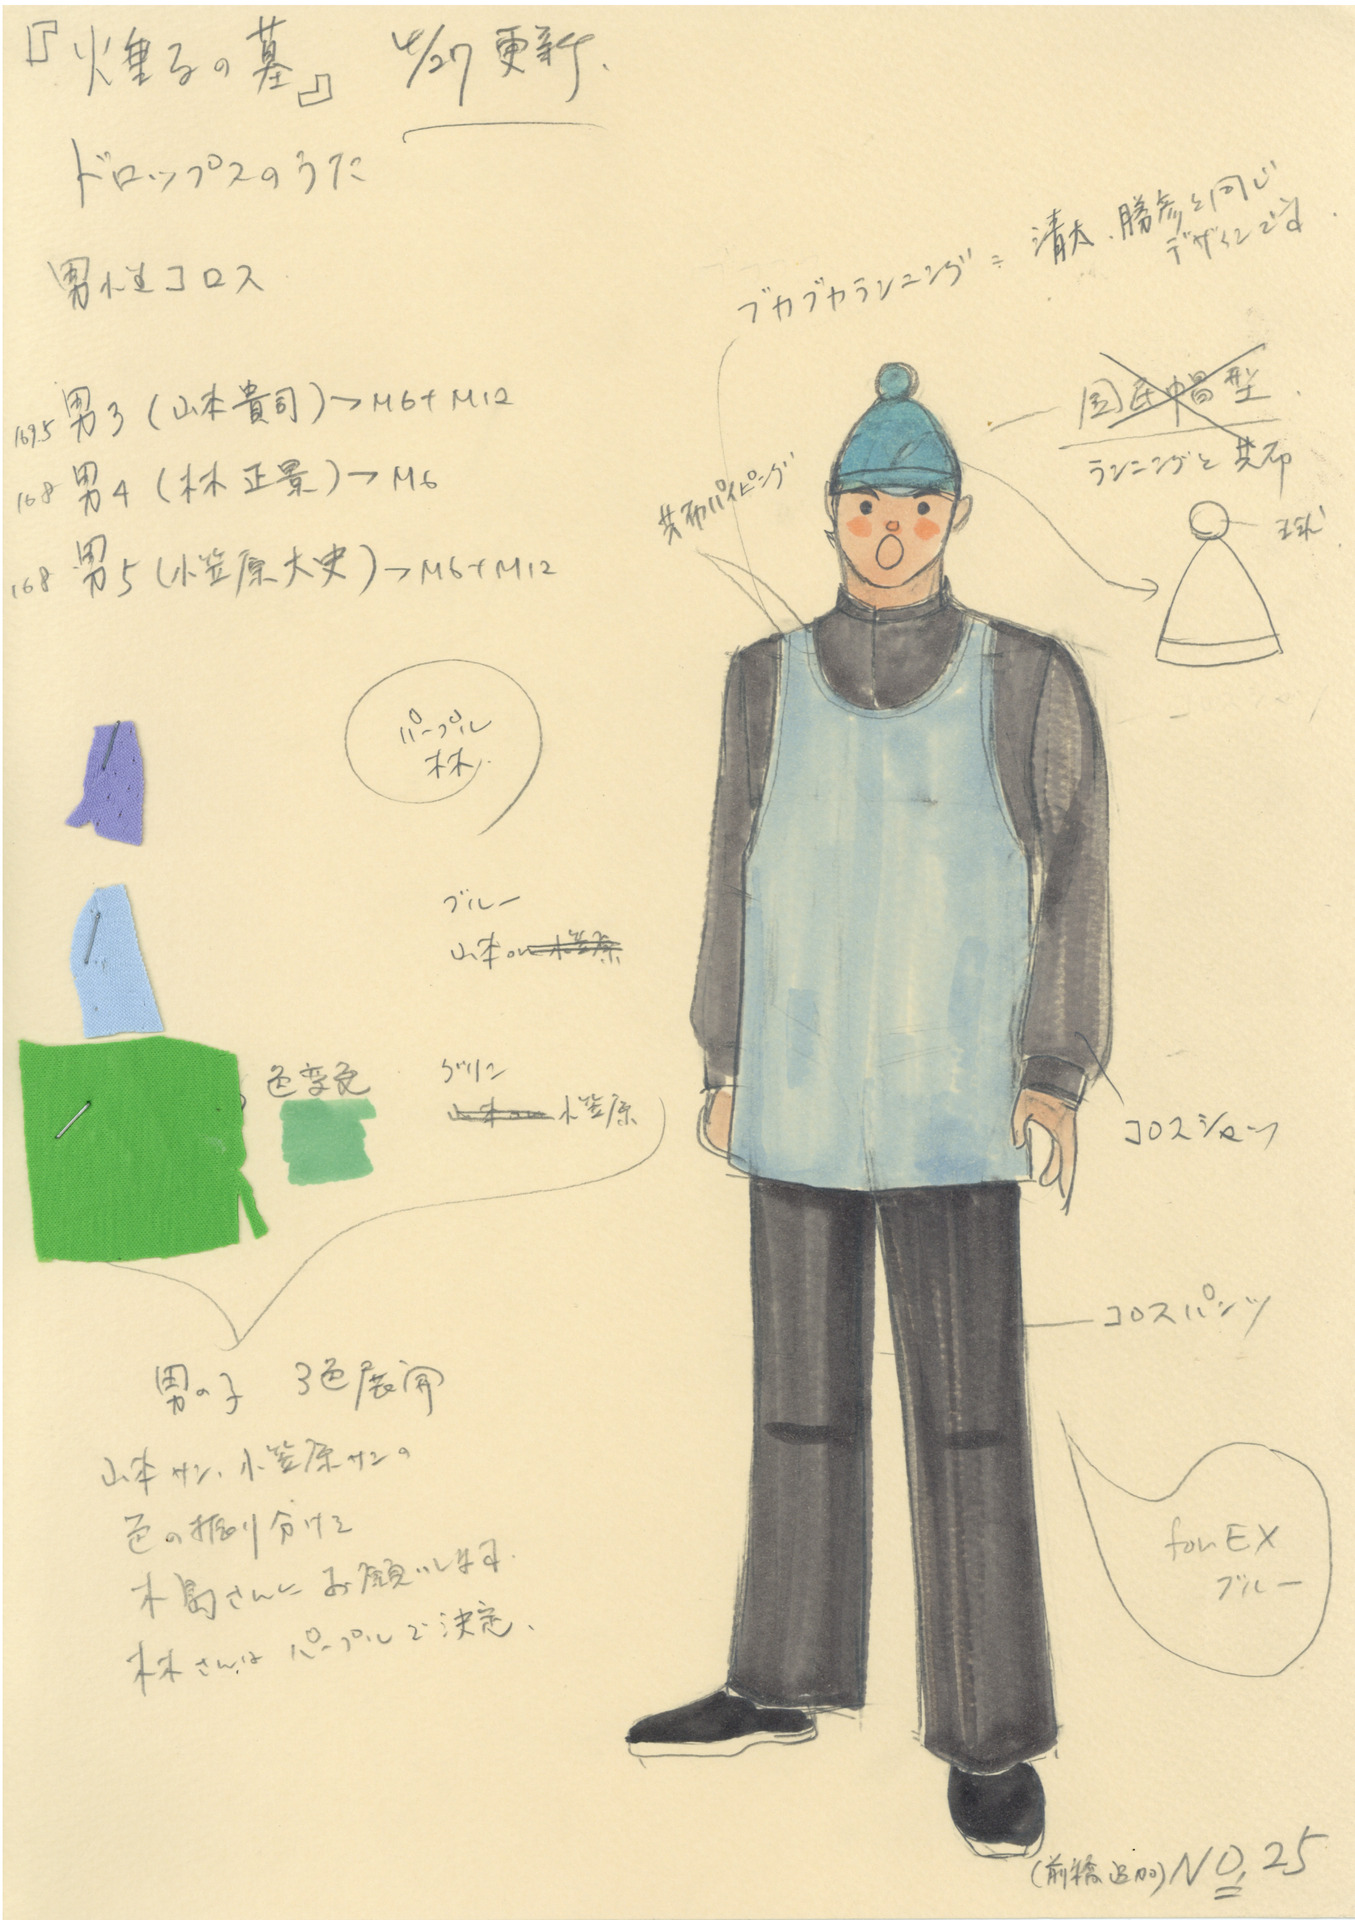 『火垂るの墓』 4/27 更新.
ドロップスのうた
男性コロス
169.5 男3 (山本貴司)→M6+M12
168 男4 (林 正景)→M6
168 男5 (小笠原大史)→M6+M12
ブカブカランニング = 清太、勝彦と同じ
デザインです.
国民帽型
ランニングと共布
玉
共布パイピング
パープル
林
ブルー
山本or小笠原
色変更
グリン
山本or 小笠原
コロスシャツ
コロスパンツ
男の子 3色展開
山本サン、小笠原サンの
色の振り分けを
木島さんに お願いします.
林さんは パープルで決定.
for EX
ブルー
(前橋追加) NO, 25